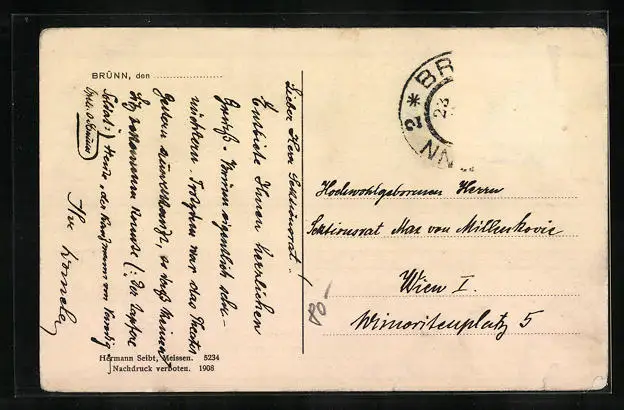 BRÜNN, den
Lieber Herr Sektionsrat!
Entbiete Ihnen herzlichen
Gruß. Brünn eigentlich
nüchtern. Trotzdem war das Theater
gestern ausverkauft, es
(: Der tapfere
Soldat :) Heute "der Kaufmann von Venedig
Ihr
Hermann Seibt, Meissen. 5234
Nachdruck verboten. 1908
BR
* 2
23
NN
Hochwohlgeborenen Herrn
Sektionsrat Max von Millenkovic
Wien I.
Minoritenplatz 5
20